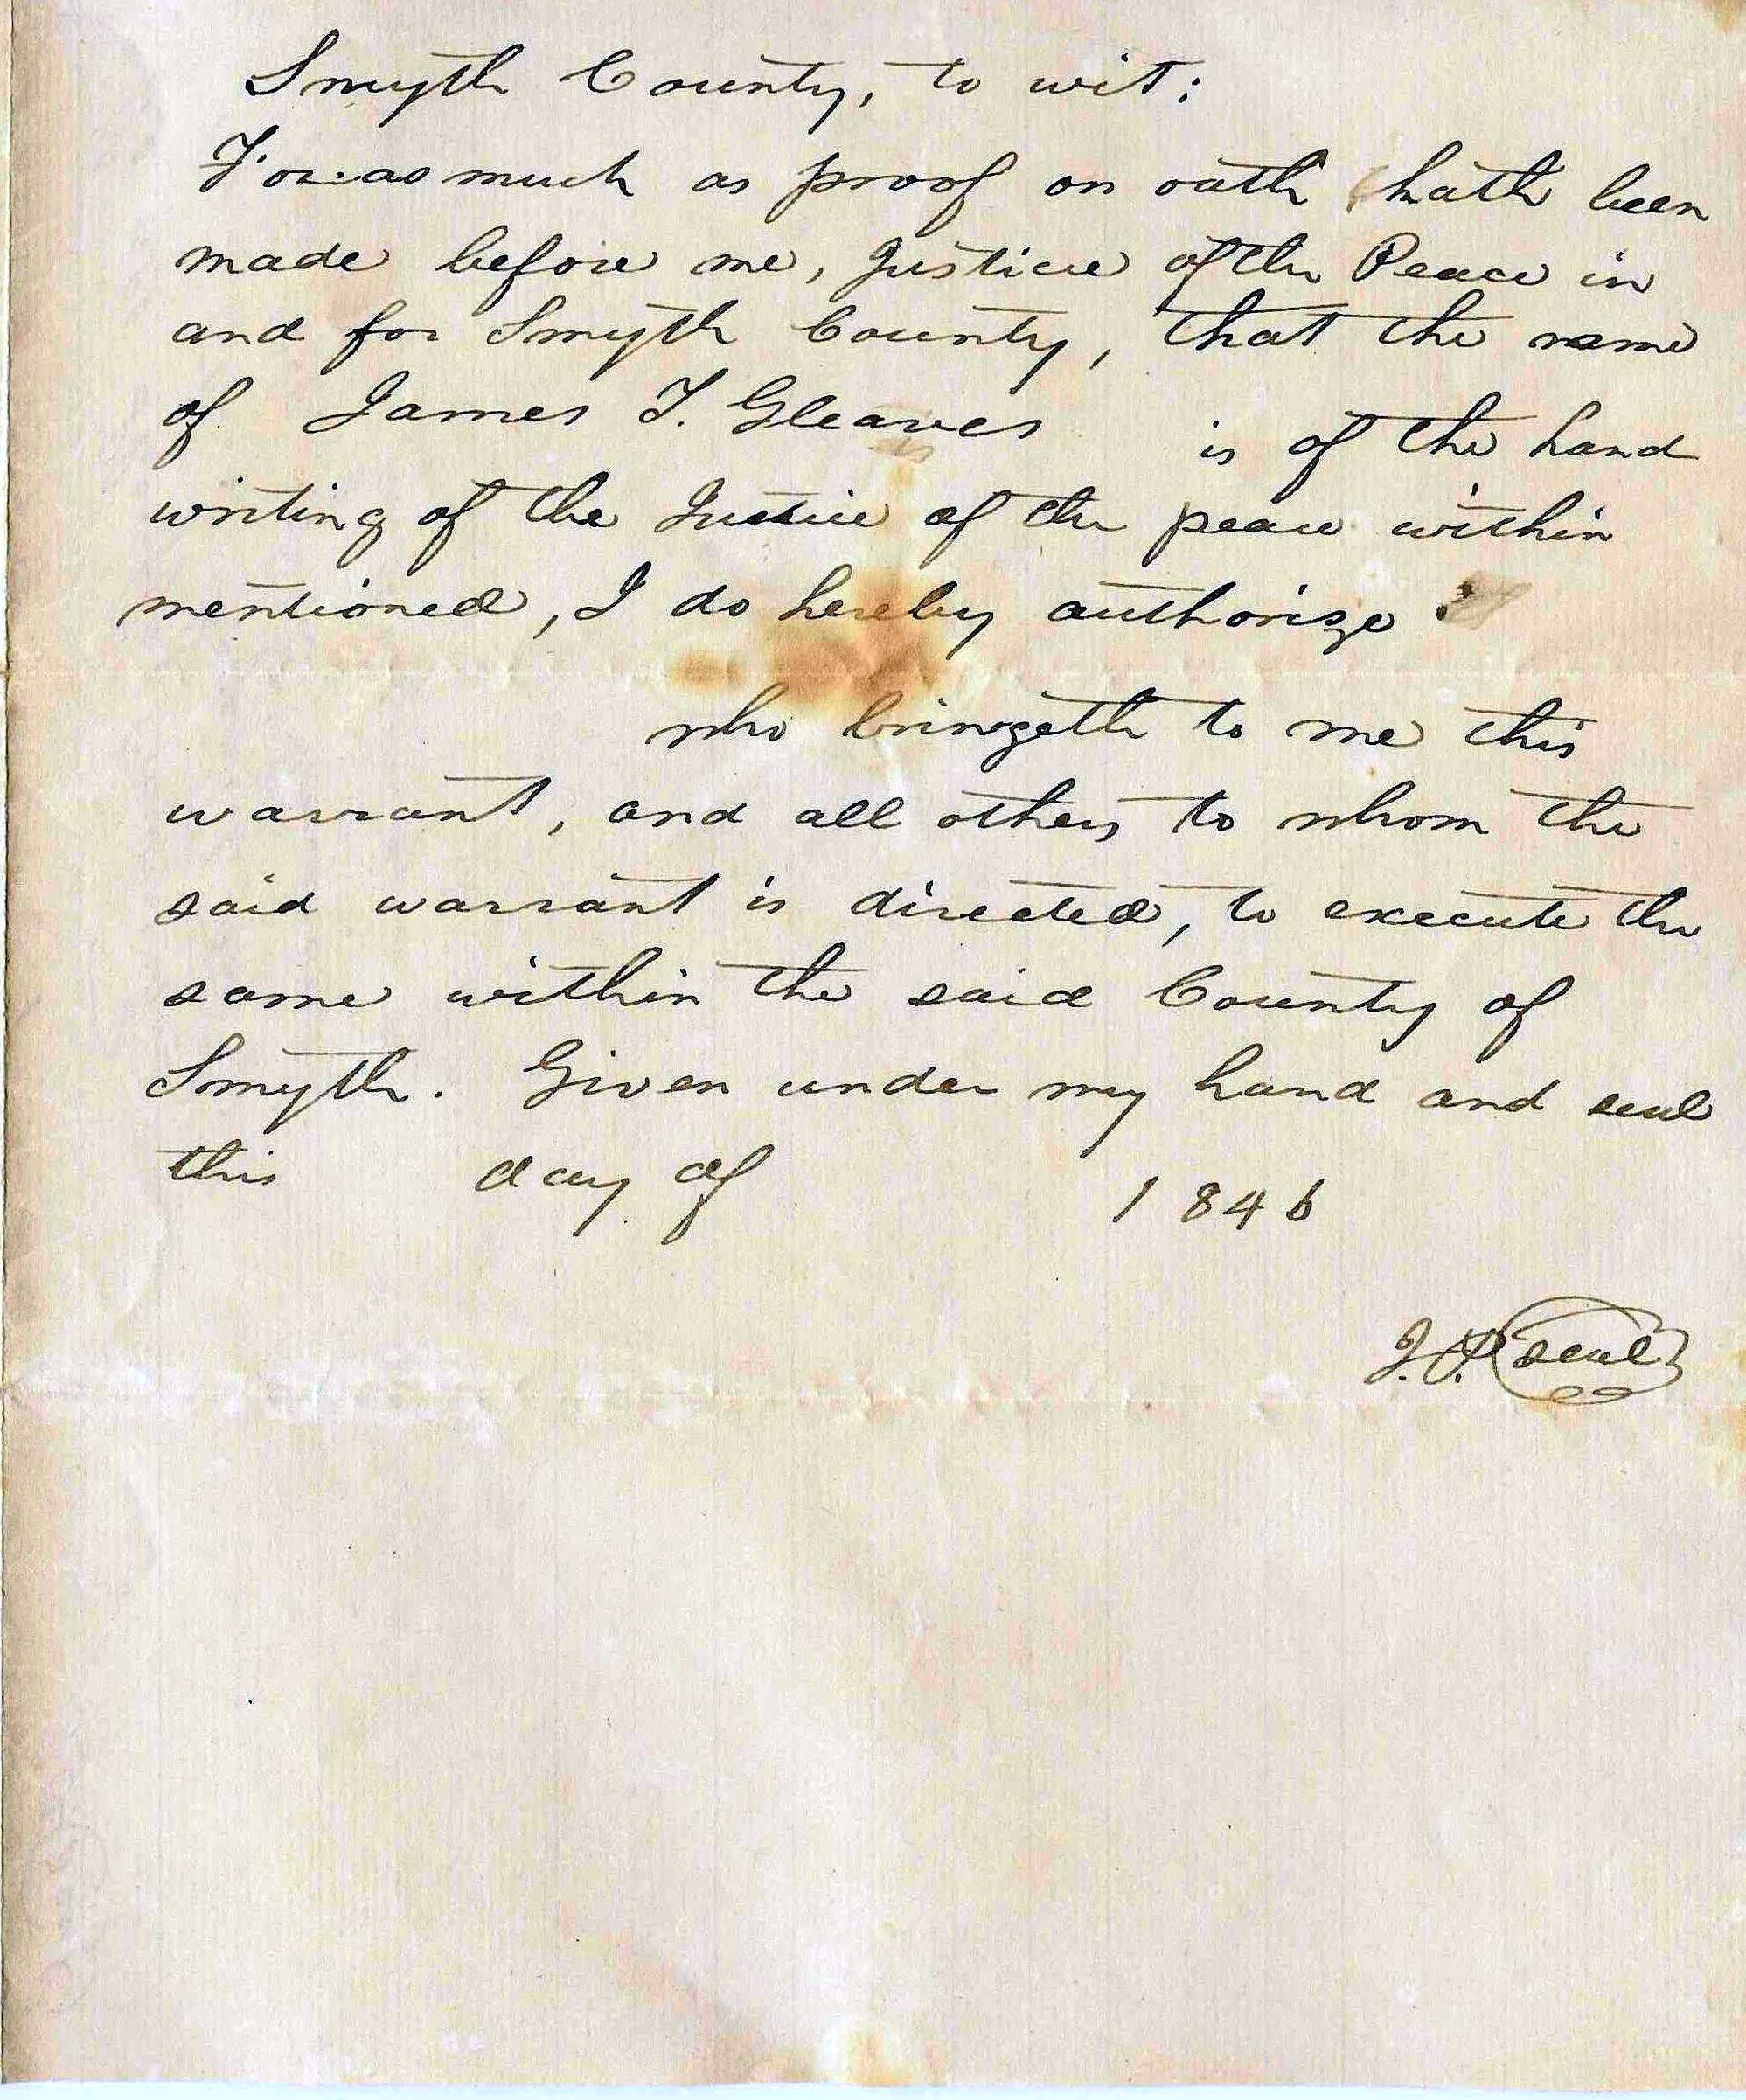 Smyth County, to wit:
Forasmuch as proof on oath hath been
made before me, Justice of the Peace in
and for Smyth County, that the name
of James T. Gleaves is of the hand
writing of the Justice of the peace within
mentioned, I do hereby authorize
who bringeth to me this
warrant, and all others to whom the
said warrant is directed, to execute the
same within the said County of
Smyth. Given under my hand and seal
this day of 1846
J.P. seal